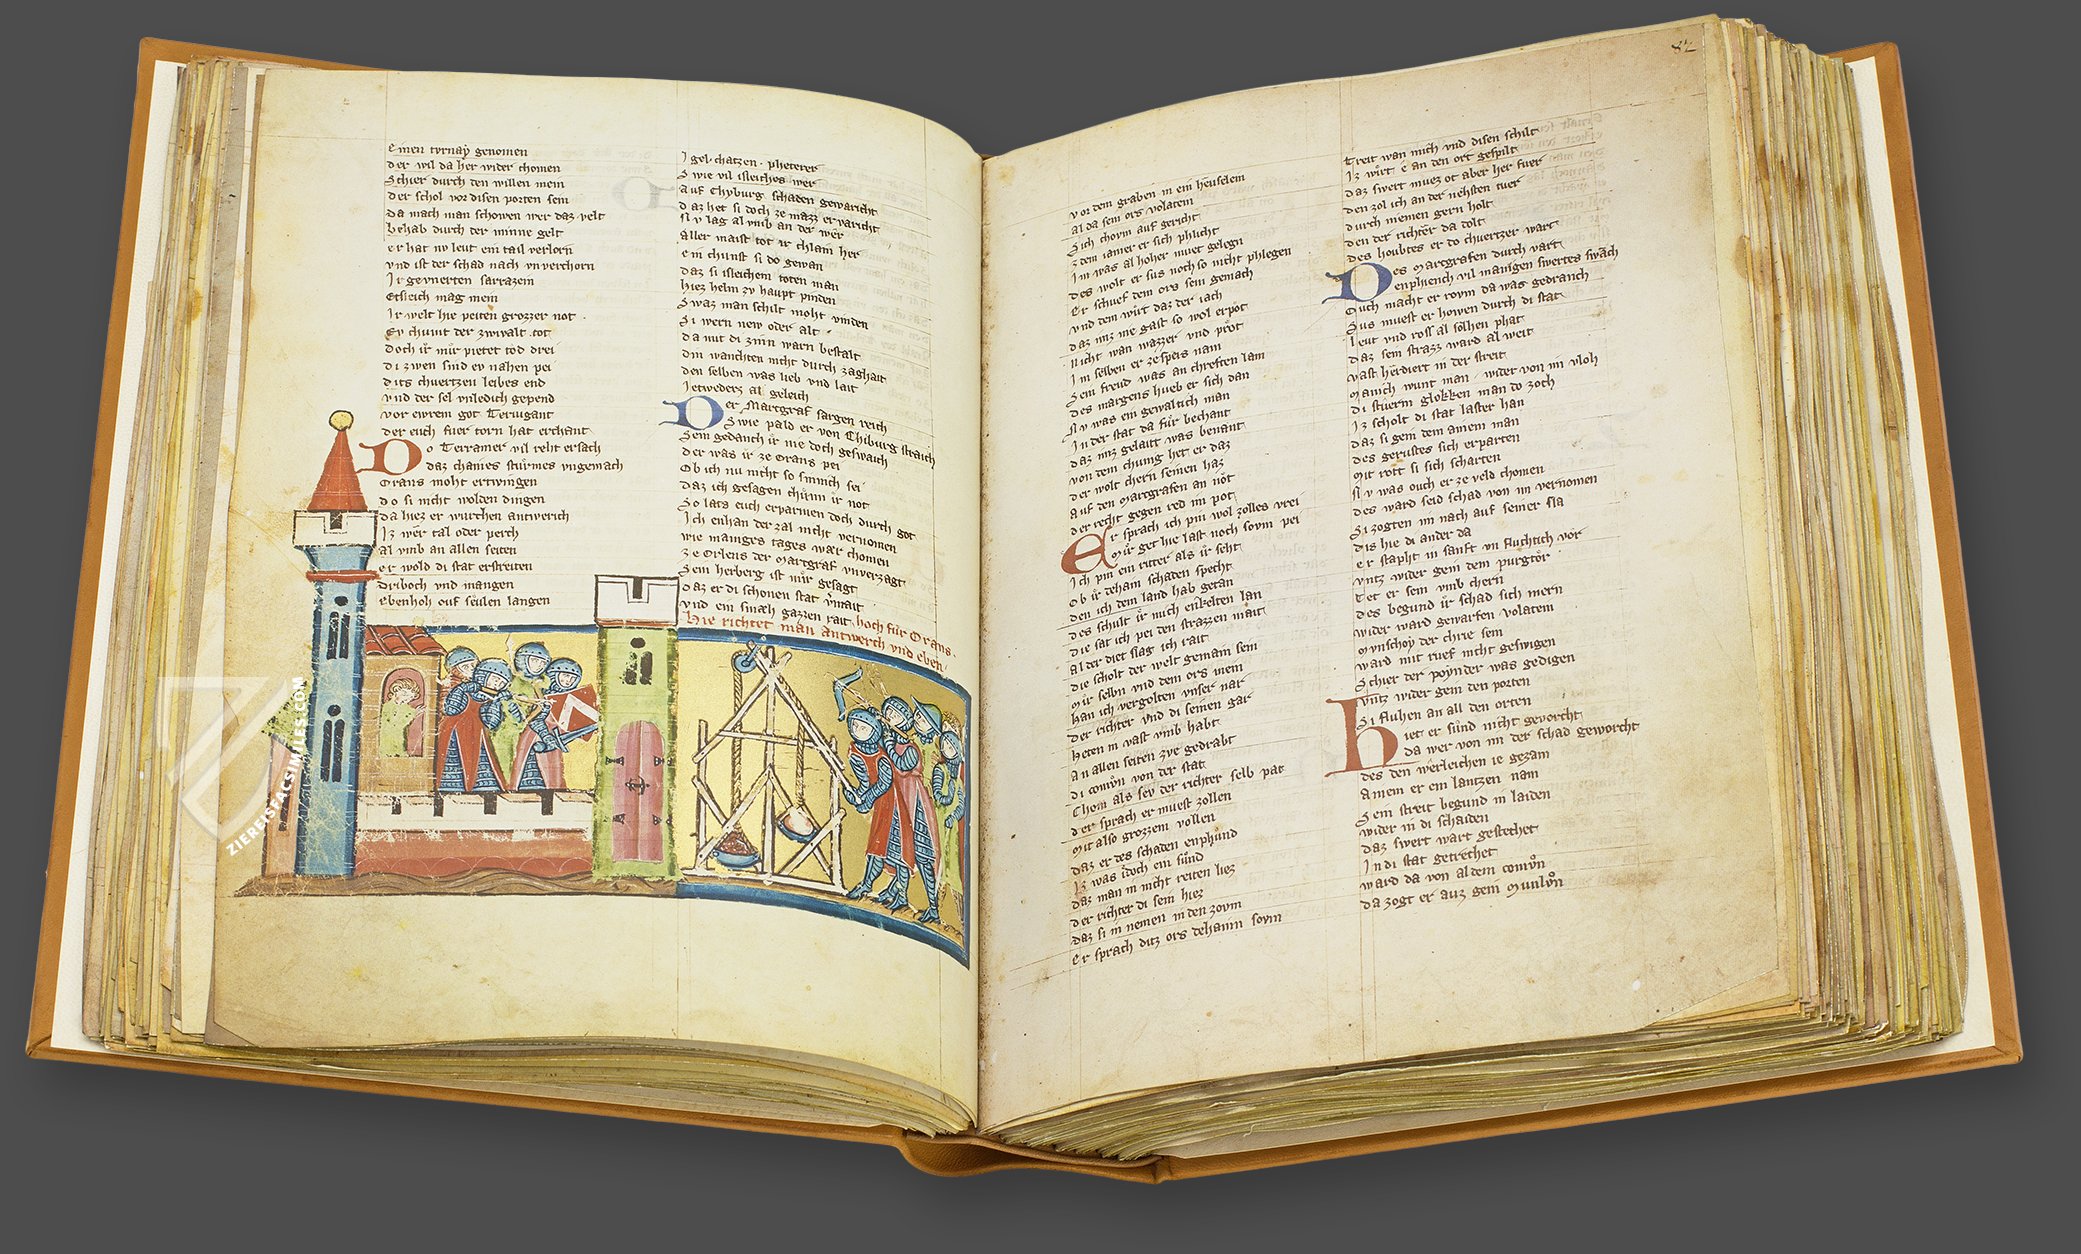 einen turnay genomen
der wil da her wider chomen
Schier durch den willen mein
der schol vor disen porten sein
da mach man schowen wer daz velt
behab durch der minne gelt
er hat nv leut ein tail verlorn
vnd ist der schad nach vnverchorn
Ir gevnerten sarrazein
Etsleich mag mein
Ir welt hie peiten grozzer not
Ev chumt der zwivalt tot
doch ir mir pietet tod drei
di zwen sind ev nahen pei
dits churtzen leibes end
vnd der sel vnledich gepend
vor ewrem got Teruigant
der euch fuer torn hat erchant
Do Terramer vil reht ersach
daz chaines sturmes vngemach
Orans moht ertwingen
do si nicht wolden dingen
da hiez er wurchen antwerich
Iz wer tal oder perch
al vmb an allen seiten
er wold di stat erstreiten
driboch vnd mangen
ebenhoh ouf seulen langen
Igel chatzen pheterer
Swie vil isleiches wer
auf Chyburg schaden gewaricht
daz het si doch ze mazz ervaricht
Nv lag al vmb an der wer
aller maist tot ir chlain her
ein chunst si do gewan
daz si isleichem toten man
hiez helm zv haupt pinden
Swaz man schilt moht vinden
Si wern new oder alt
da mit di zinn warn bestalt
din wanchten nicht durch zaghait
den selben was lieb vnd lait
Ietweders al geleich
Der Marcgraf sargen reich
Swie pald er von Chiburg straich
Sein gedanch ir nie doch geswaich
der was ir ze Orans pei
Ob ich nu nicht so sinnich sei
daz ich gesagen chunn ir not
So lats euch erparmen doch durch got
Ich enhan der zal nicht vernomen
wie maniges tages wær chomen
ze Orlens der Marcgraf vnverzagt
Sein herberg ist mir gesagt
daz er di schonen stat vermait
vnd ein smæh gazzen rait
hoch fur Orans
hie richtet man antwerch vnd eben
82
vor dem graben in ein heuselein
al da sein ors volatein
Sich chovm auf gericht
zdem iamer er sich phlicht
Im was al hoher muet gelegn
des wolt er sus noch so nicht phlegen
Er schuef dem ors sein gemach
vnd dem wirt daz der iach
daz inz nie gast so wol erpot
Nicht wan wazzer vnd prot
Im selben er ze speis nam
Sein freud was an chreften lam
des margens hueb er sich dan
Nv was ein gewaltich man
In der stat da fur bechant
daz inz gelaitt was benant
von dem chunig het er daz
der wolt chern seinen haz
Auf den marcgrafen an not
der recht gegen red im pot
Er sprach ich pin wol zolles vrei
Mir get hie last noch sovm pei
Ich pin ein ritter als ir seht
Ob ir dehain schaden specht
den ich dem land hab getan
des schult ir mich enkelten lan
die sat ich pei den strazzen mait
Al der diet slag ich rait
die scholt der welt gemain sein
Mir selbn vnd dem ors mein
han ich vergolten vnser nar
der richter vnd di seinen gar
Heten in vast vmb habt
An allen seiten zve gedrabt
di comun von der stat
Chom als sev der richter selb pat
der sprach er muest zollen
Mit also grozzem vollen
daz er des schaden enphund
Iz was idoch ein sund
daz man in nicht reiten liez
der richter di sein hiez
daz si in nemen in den zovm
Er sprach ditz ors dehainn sovm
Treit wan mich vnd disen schilt
Iz wirt e an den ort gespilt
daz swert muez ot aber her fuer
den zol ich an der nehsten tuer
durch meinen gern holt
den der richter da dolt
des houbtes er do churtzer wart
Des marcgrafen durch vart
Enphiench vil manigen swertes swach
Ouch macht er rovm da was gedranch
Sus muest er howen durch di stat
leut vnd ross al solhen phat
daz sein strazz ward al weit
vast herdiert in der streit
Manich wunt man wider von im vloh
di sturm glokken man do zoch
Iz scholt di stat laster han
daz si gein dem ainem man
des gerustes sich erparten
Mit rott si sich scharten
Nv was ouch er ze veld chomen
des ward seid schad von im vernomen
Si zogten im nach auf seiner sla
dis hie di ander da
Er stapht in sanft vn fluchtich vor
vntz wider gein dem purgtor
Tet er sein vmb chern
des begund ir schad sich mern
wider ward geworfen volatein
Mvnschoy der chrie sein
ward mit ruef nicht geswigen
Schier der poynder was gedigen
vntz wider gein den porten
Si fluhen an all den orten
Hiet er sund nicht gevorcht
da wer von im der schad geworcht
des den werleichen ie gezam
Ainem er ein lantzen nam
Sein streit begund in laiden
wider in di schaiden
daz swert wart gestechet
In di stat getrechet
ward da von al dem comun
da zogt er auz gein Munlun
ZIEREISFACSIMILES.COM